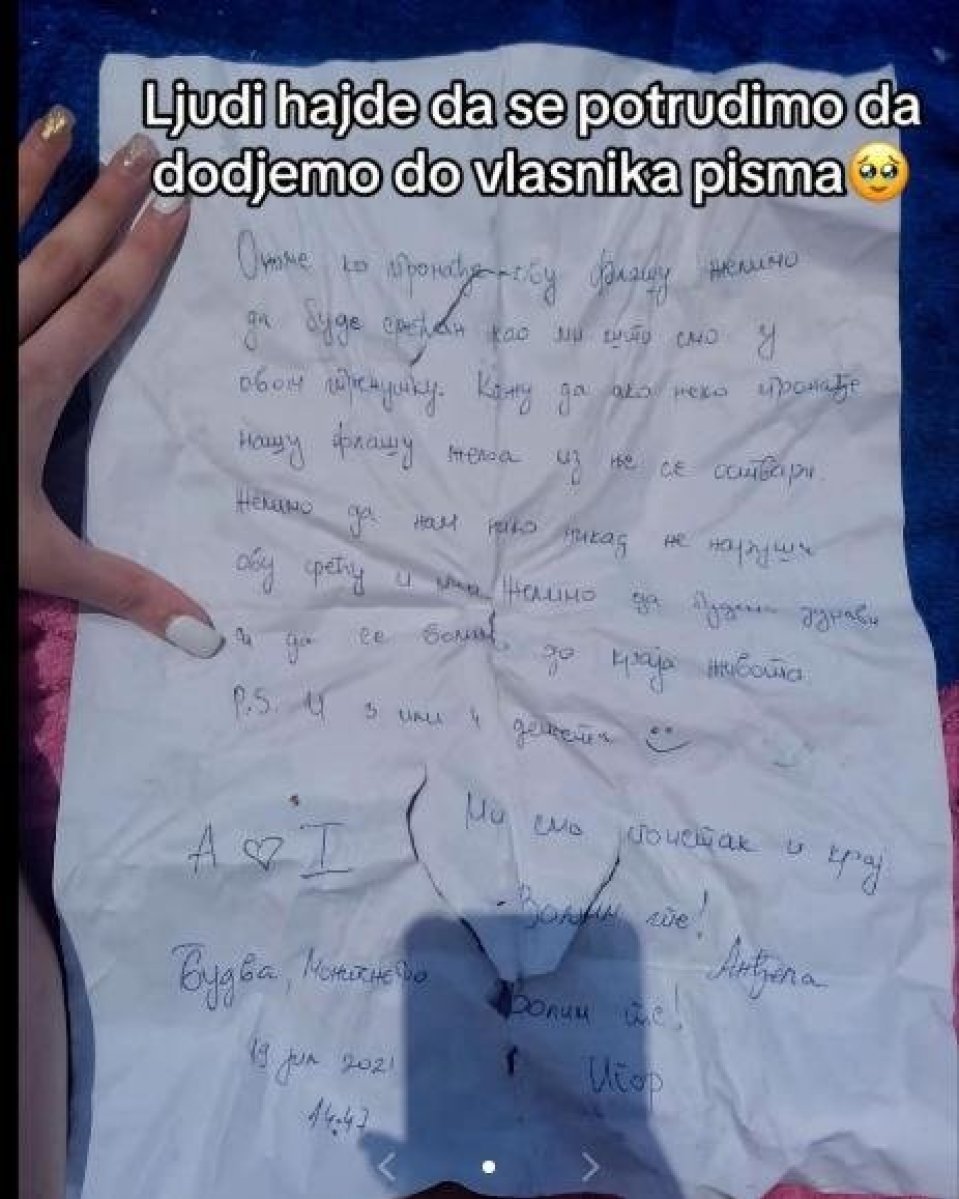 Ljudi hajde da se potrudimo da
dodjemo do vlasnika pisma🥹
Ономе ко пронађе ову флашу желимо
да буде срећан као ми што смо у
овом тренутку. Кажу да ако неко пронађе
нашу флашу жеља из ње се оствари.
Желимо да нам нико никад не наруши
ову срећу и Желимо да будемо
и да се волимо до краја живота
P.S. И 3 или 4 детета
А ♡ I
Ми смо почетак и крај
Волим те!
Анђела
Будва, Монтенегро
Волим те!
19 јул 2021
Игор
14:47